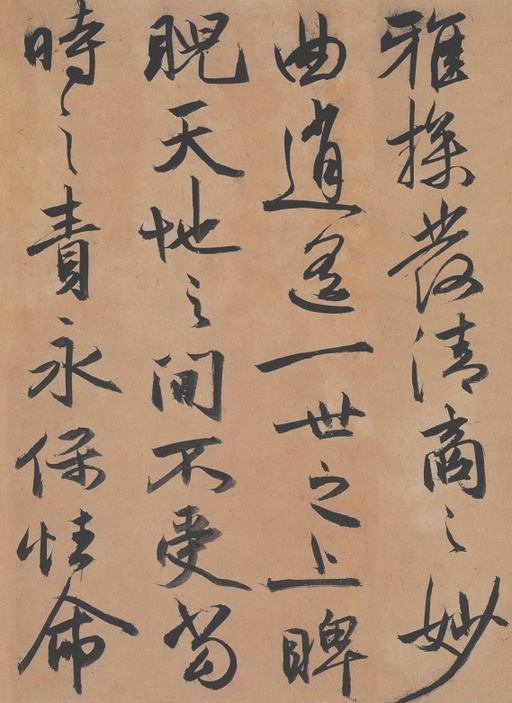 雅操發清商之妙
曲逍遙一世之上睥
睨天地之間不受當
時之責永保性命